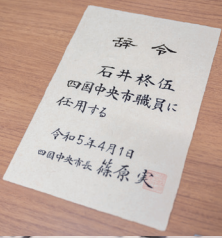 辞令
石井柊伍
四国中央市職員に
任用する
令和5年4月1日
四国中央市長 篠原実